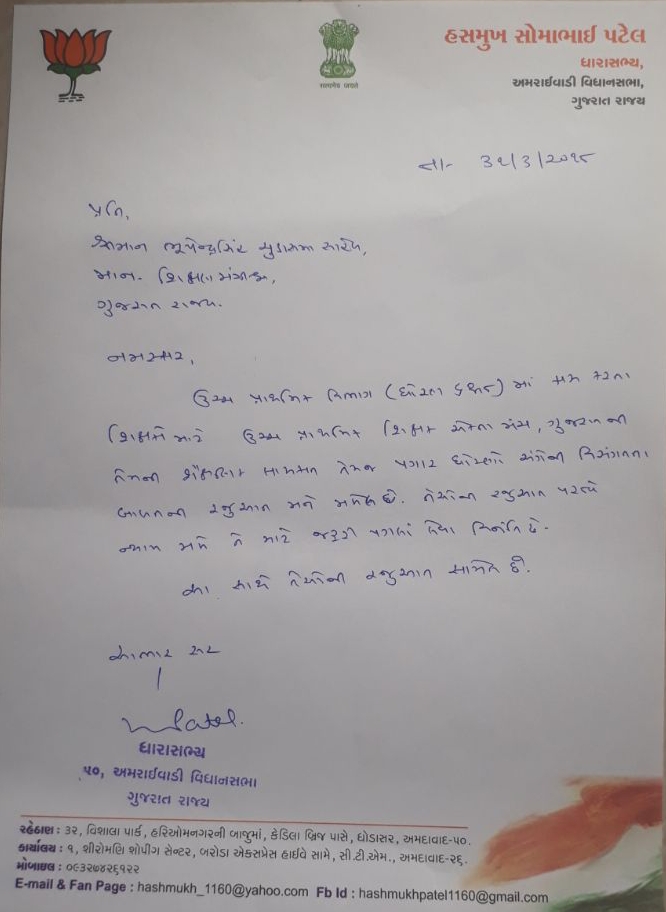 હસમુખ સોમાભાઈ પટેલ
ધારાસભ્ય,
અમરાઈવાડી વિધાનસભા,
ગુજરાત રાજ્ય
सत्यमेव जयते
તા- ૩૧/૩/૨૦૧૮
પ્રતિ,
શ્રીમાન ભૂપેન્દ્રસિંહ ચુડાસમા સાહેબ,
માન. શિક્ષણ મંત્રીશ્રી,
ગુજરાત રાજ્ય.
નમસ્કાર,
ઉચ્ચ પ્રાથમિક વિભાગ (ધોરણ ૬ થી ૮) માં કામ કરતા
શિક્ષકો માટે ઉચ્ચ પ્રાથમિક શિક્ષક એકતા મંચ, ગુજરાત ની
તેમની શૈક્ષણિક લાયકાત તેમજ પગાર ધોરણો અંગેની વિસંગતતા
બાબતની રજુઆત મને મળેલ છે. તેઓની રજુઆત પરત્વે
ન્યાય મળે તે માટે જરૂરી પગલાં લેવા વિનંતિ છે.
આ સાથે તેઓની રજુઆત સામેલ છે.
આભાર સહ
ધારાસભ્ય
૫૦, અમરાઈવાડી વિધાનસભા
ગુજરાત રાજ્ય
રહેઠાણ : ૩૨, વિશાલા પાર્ક, હરિઓમનગરની બાજુમાં, કેડિલા બ્રિજ પાસે, ઘોડાસર, અમદાવાદ-૫૦.
કાર્યાલય : ૧, શીરોમણિ શોપીંગ સેન્ટર, બરોડા એક્સપ્રેસ હાઈવે સામે, સી.ટી.એમ., અમદાવાદ-૨૬.
મોબાઇલ : ૦૯૩૨૭૪૨૬૧૨૨
E-mail & Fan Page : hashmukh_1160@yahoo.com Fb Id : hashmukhpatel1160@gmail.com